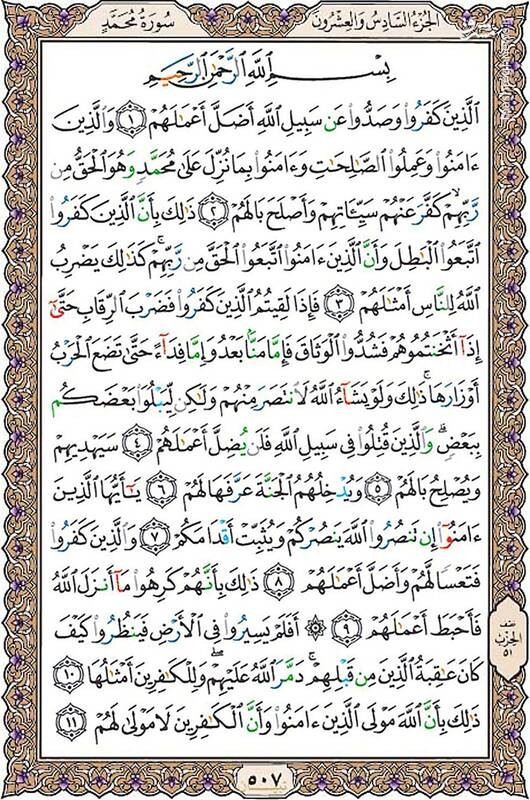 الجُزءُ السَّادِسُ وَالعِشْرُونَ
سُورَةُ مُحَمَّدٍ
بِسْمِ ٱللَّهِ ٱلرَّحْمَٰنِ ٱلرَّحِيمِ
ٱلَّذِينَ كَفَرُوا۟ وَصَدُّوا۟ عَن سَبِيلِ ٱللَّهِ أَضَلَّ أَعْمَٰلَهُمْ ١ وَٱلَّذِينَ
ءَامَنُوا۟ وَعَمِلُوا۟ ٱلصَّٰلِحَٰتِ وَءَامَنُوا۟ بِمَا نُزِّلَ عَلَىٰ مُحَمَّدٍ وَهُوَ ٱلْحَقُّ مِن
رَّبِّهِمْ ۙ كَفَّرَ عَنْهُمْ سَيِّـَٔاتِهِمْ وَأَصْلَحَ بَالَهُمْ ٢ ذَٰلِكَ بِأَنَّ ٱلَّذِينَ كَفَرُوا۟
ٱتَّبَعُوا۟ ٱلْبَٰطِلَ وَأَنَّ ٱلَّذِينَ ءَامَنُوا۟ ٱتَّبَعُوا۟ ٱلْحَقَّ مِن رَّبِّهِمْ ۚ كَذَٰلِكَ يَضْرِبُ
ٱللَّهُ لِلنَّاسِ أَمْثَٰلَهُمْ ٣ فَإِذَا لَقِيتُمُ ٱلَّذِينَ كَفَرُوا۟ فَضَرْبَ ٱلرِّقَابِ حَتَّىٰٓ
إِذَآ أَثْخَنتُمُوهُمْ فَشُدُّوا۟ ٱلْوَثَاقَ فَإِمَّا مَنًّۢا بَعْدُ وَإِمَّا فِدَآءً حَتَّىٰ تَضَعَ ٱلْحَرْبُ
أَوْزَارَهَا ۚ ذَٰلِكَ وَلَوْ يَشَآءُ ٱللَّهُ لَٱنتَصَرَ مِنْهُمْ وَلَٰكِن لِّيَبْلُوَا۟ بَعْضَكُم
بِبَعْضٍ ۗ وَٱلَّذِينَ قُتِلُوا۟ فِى سَبِيلِ ٱللَّهِ فَلَن يُضِلَّ أَعْمَٰلَهُمْ ٤ سَيَهْدِيهِمْ
وَيُصْلِحُ بَالَهُمْ ٥ وَيُدْخِلُهُمُ ٱلْجَنَّةَ عَرَّفَهَا لَهُمْ ٦ يَٰٓأَيُّهَا ٱلَّذِينَ
ءَامَنُوٓا۟ إِن تَنصُرُوا۟ ٱللَّهَ يَنصُرْكُمْ وَيُثَبِّتْ أَقْدَامَكُمْ ٧ وَٱلَّذِينَ كَفَرُوا۟
فَتَعْسًا لَّهُمْ وَأَضَلَّ أَعْمَٰلَهُمْ ٨ ذَٰلِكَ بِأَنَّهُمْ كَرِهُوا۟ مَآ أَنزَلَ ٱللَّهُ
فَأَحْبَطَ أَعْمَٰلَهُمْ ٩ ۞ أَفَلَمْ يَسِيرُوا۟ فِى ٱلْأَرْضِ فَيَنظُرُوا۟ كَيْفَ
كَانَ عَٰقِبَةُ ٱلَّذِينَ مِن قَبْلِهِمْ ۚ دَمَّرَ ٱللَّهُ عَلَيْهِمْ ۖ وَلِلْكَٰفِرِينَ أَمْثَٰلُهَا ١٠
ذَٰلِكَ بِأَنَّ ٱللَّهَ مَوْلَى ٱلَّذِينَ ءَامَنُوا۟ وَأَنَّ ٱلْكَٰفِرِينَ لَا مَوْلَىٰ لَهُمْ ١١
نصف
الحزب
٥١
٥٠٧